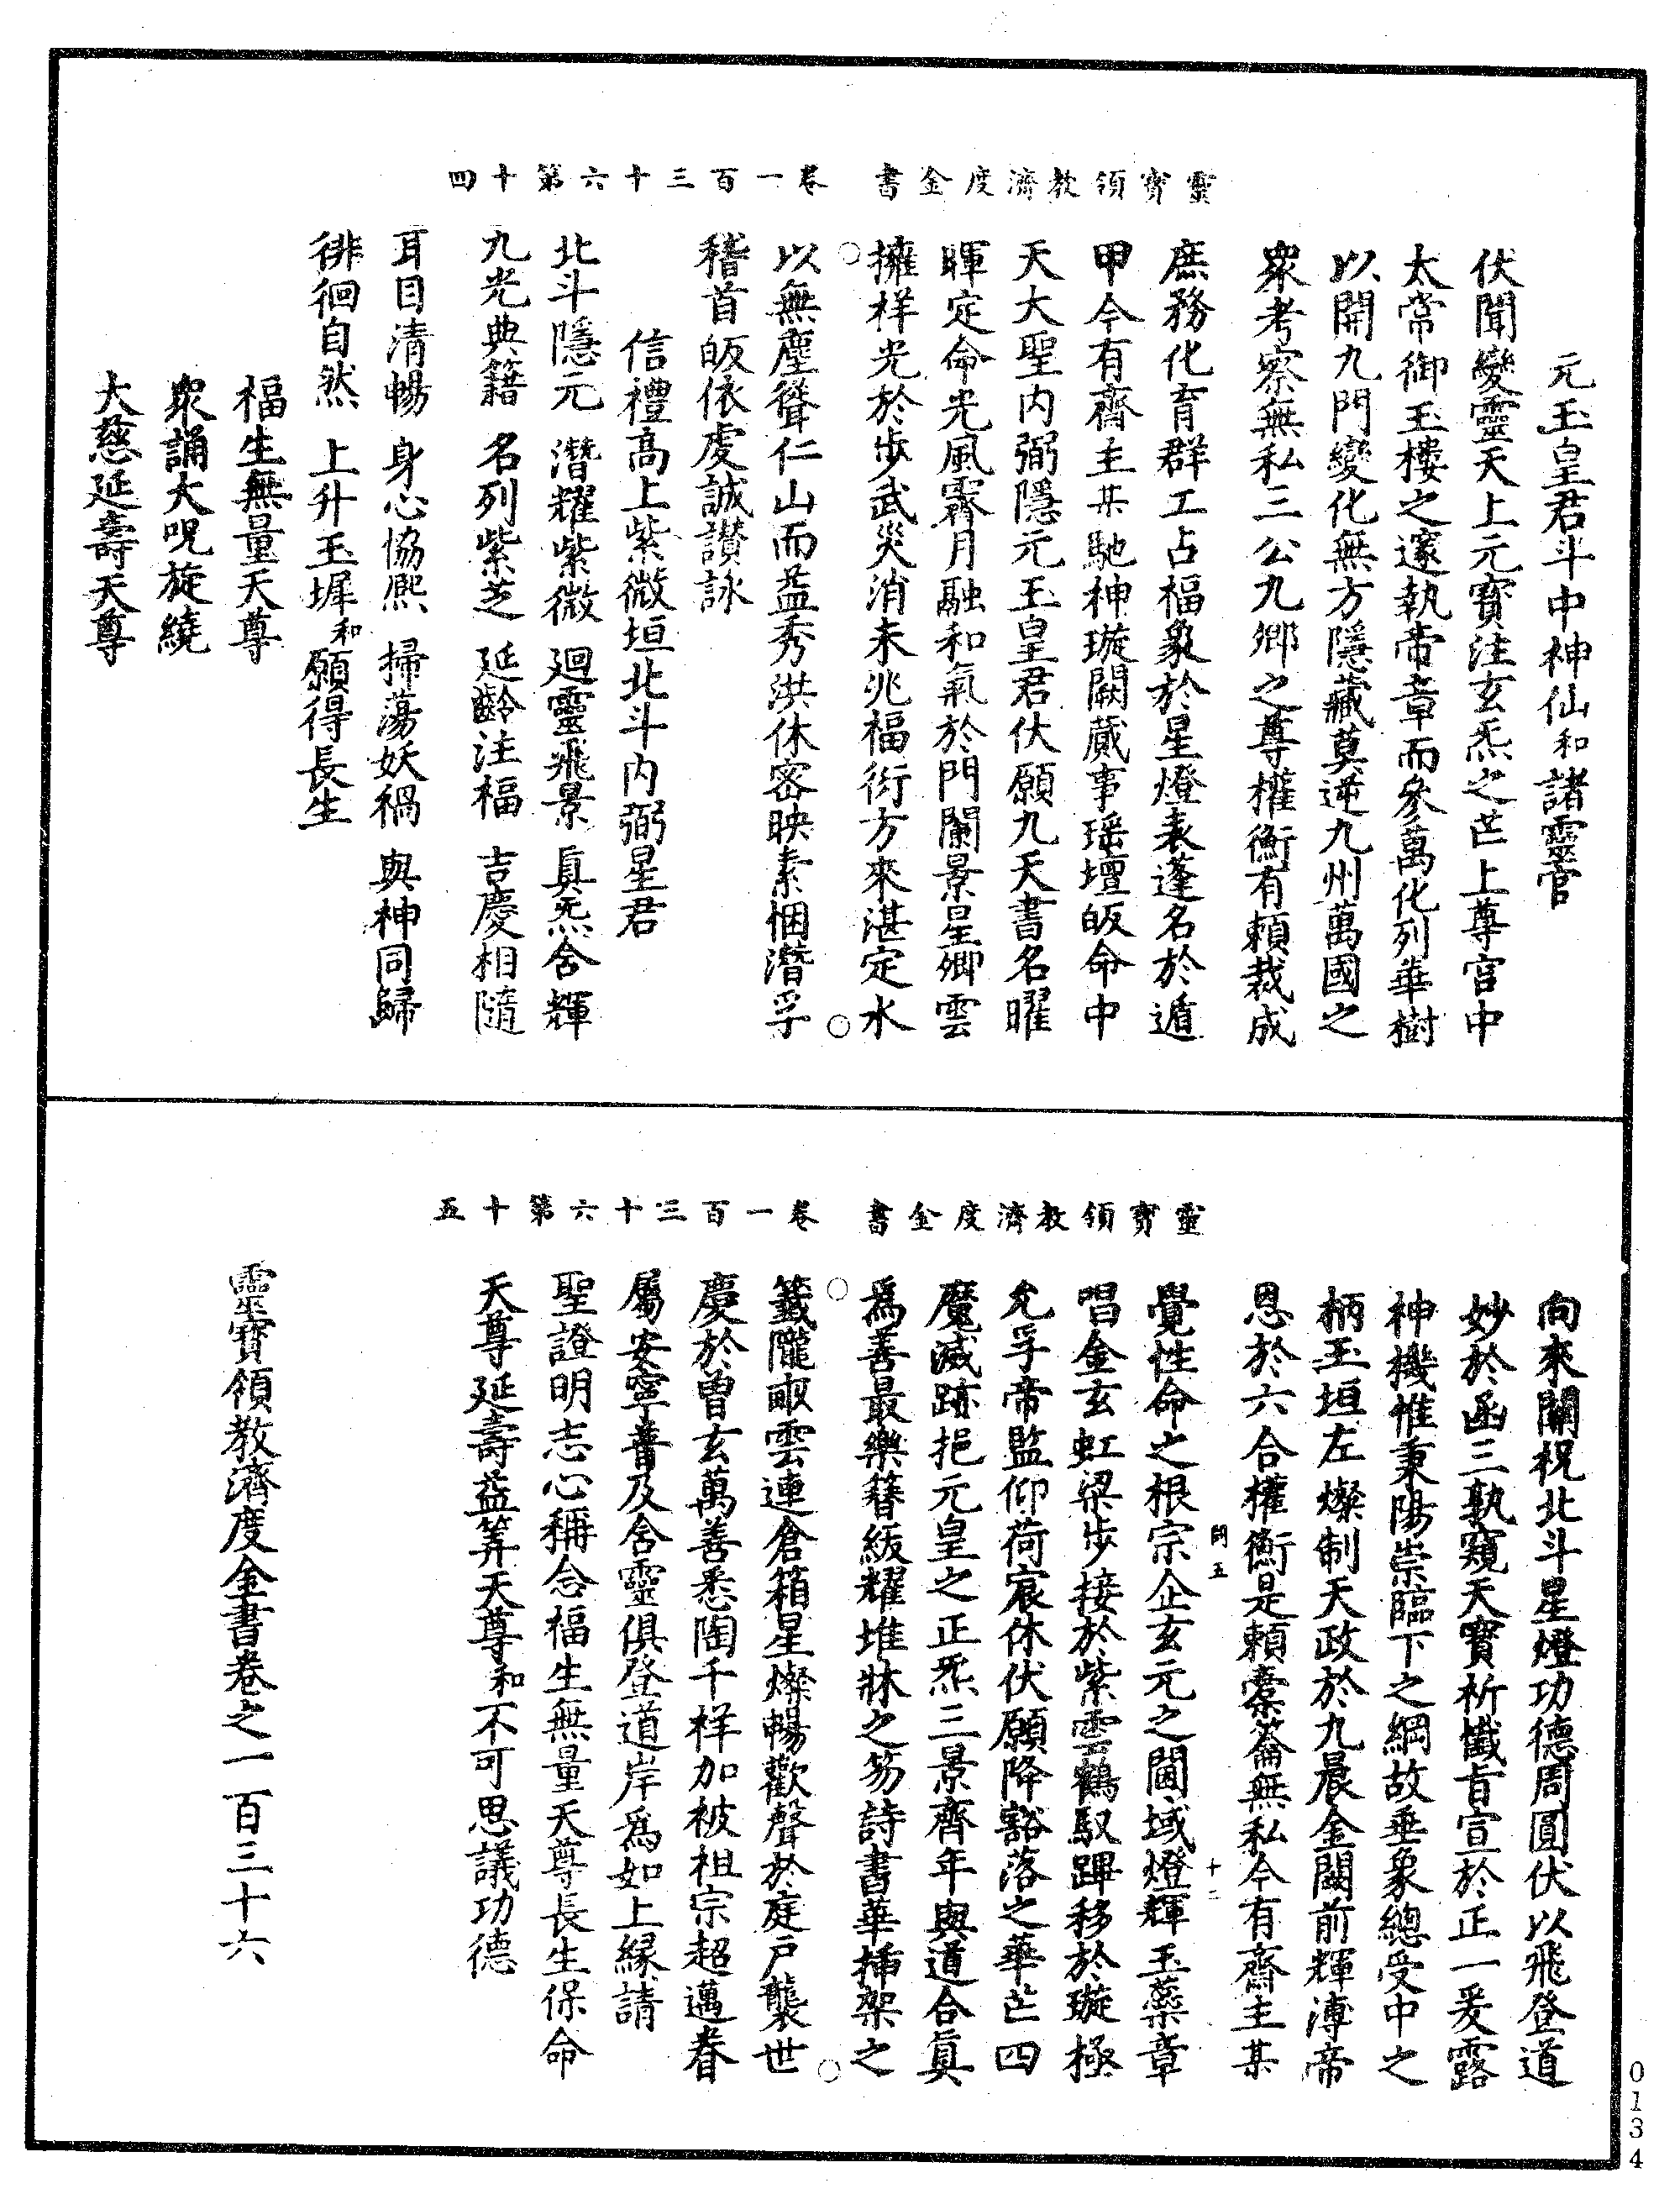 靈寶領教濟度金書　卷一百三十六第十四
元玉皇君斗中神仙和諸靈官
伏聞變靈天上元寶注玄炁之芒上尊宮中
太常御玉樓之邃執帝章而參萬化列華樹
以開九門變化無方隱藏莫逆九州萬國之
衆考察無私三公九卿之尊權衡有賴裁成
庶務化育群工占福象於星燈表蓬名於遁
甲今有齋主某馳神璇闕蕆事瑶壇皈命中
天大聖内弼隱元玉皇君伏願九天書名曜
暉定命光風霽月融和氣於門闌景星卿雲
擁祥光於步武災消未兆福衍方來湛定水
以無塵聳仁山而益秀洪休密映素悃潛孚
稽首皈依虔誠讃詠
信禮高上紫微垣北斗内弼星君
北斗隱元　潛耀紫微　廻靈飛景　眞炁含輝
九光典籍　名列紫芝　延齡注福　吉慶相隨
耳目清暢　身心恊熙　掃蕩妖禍　與神同歸
徘徊自然　上升玉墀和願得長生
福生無量天尊
衆誦大呪旋繞
大慈延壽天尊
靈寶領教濟度金書　卷一百三十六第十五
向來關祝北斗星燈功德周圓伏以飛登道
妙於函三孰窺天寶祈懺旨宣於正一爰露
神機惟秉陽崇臨下之綱故垂象總受中之
柄玉垣左燦制天政於九晨金闕前輝溥帝
恩於六合權衡是賴橐籥無私今有齋主某
覺性命之根宗企玄元之閫域燈輝玉蘂章
唱金玄虹梁步接於紫雲鶴馭蹕移於璇極
允孚帝監仰荷宸休伏願降豁落之華芒四
魔滅跡挹元皇之正炁三景齊年與道合眞
爲善最樂簪紱耀堆牀之笏詩書華插架之
籤隴畝雲連倉箱星燦暢歡聲於庭戶襲世
慶於曽玄萬善悉陶千祥加被祖宗超邁眷
屬安寧普及含靈俱登道岸爲如上縁請
聖證明志心稱念福生無量天尊長生保命
天尊延壽益筭天尊和不可思議功德
靈寶領教濟度金書卷之一百三十六
十二
0134